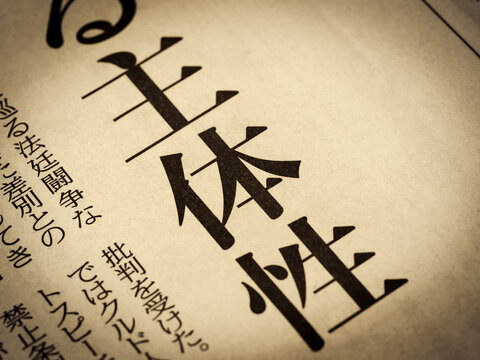 る主体性
巡る法廷闘争な
差別との
てき
批判を受けた。
ではクルド
トスピー
禁止条